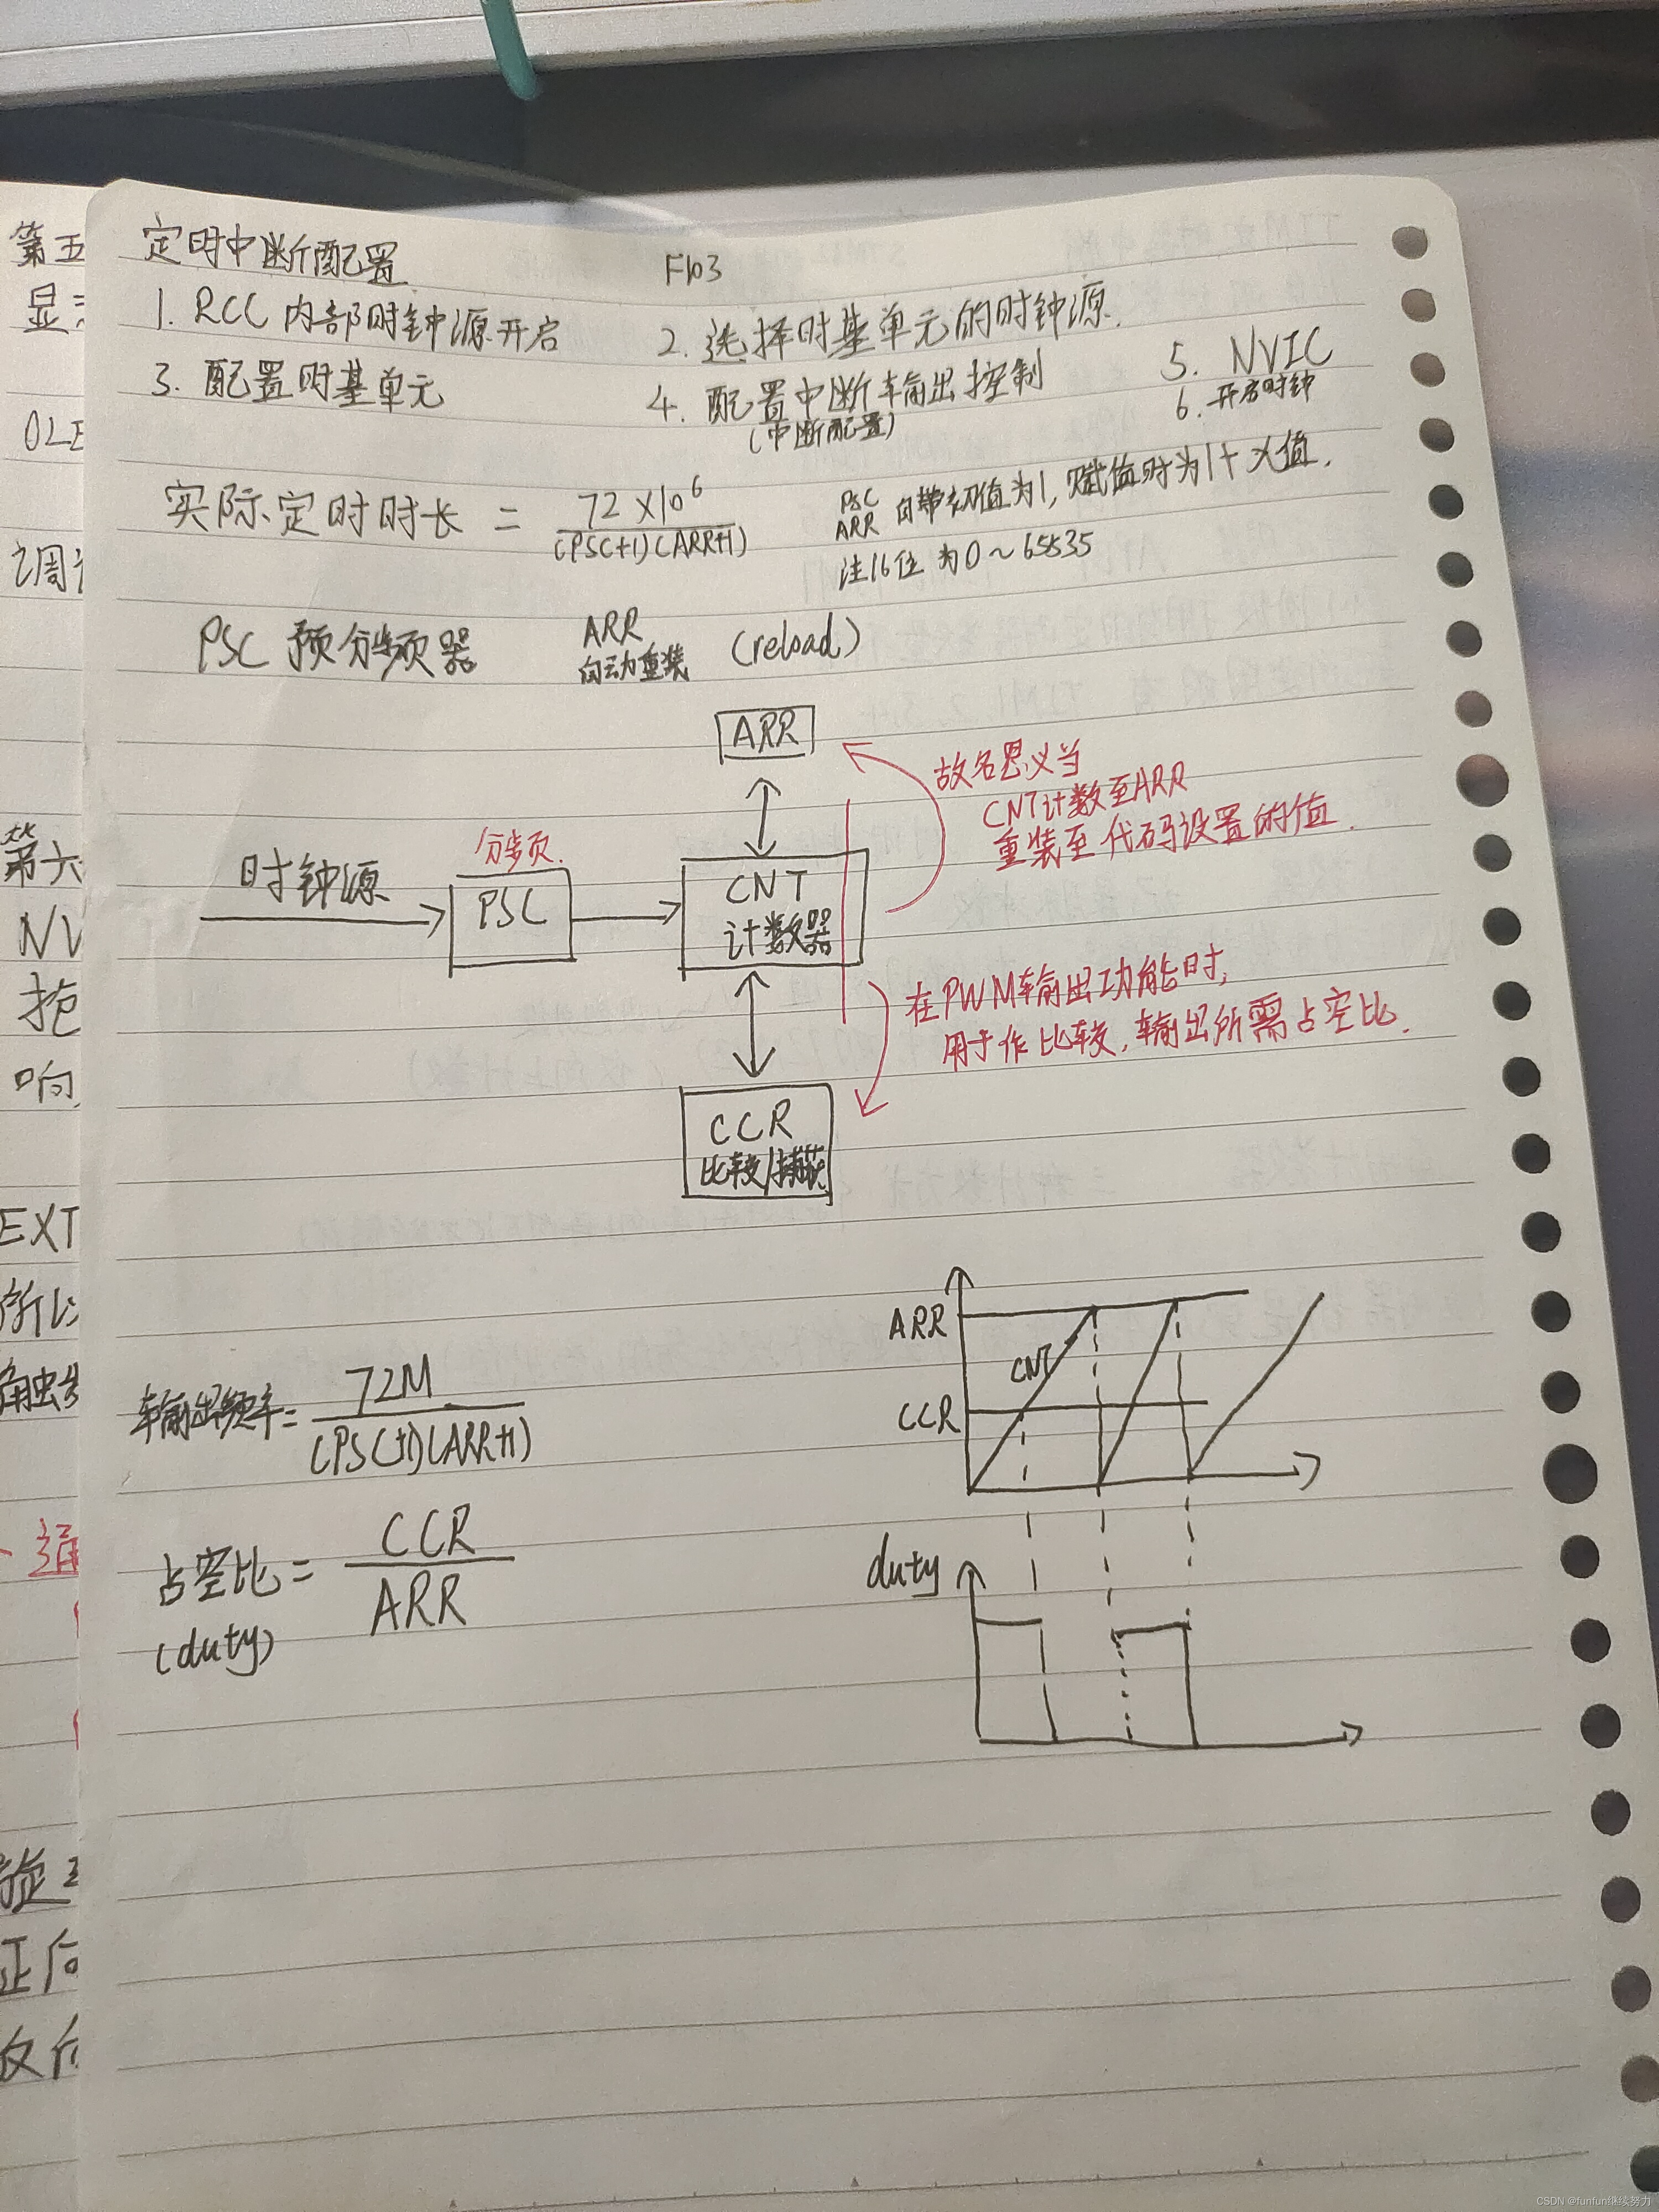 定时中断配置 F103
1. RCC 内部时钟源开启 2. 选择时基单元的时钟源.
3. 配置时基单元 4. 配置中断输出控制 5. NVIC
(中断配置) 6. 开启时钟
实际定时时长 = 72×10⁶ / (PSC+1)(ARR+1)
PSC
ARR 自带初值为1, 赋值时为1+X值.
注16位 为0~65535
PSC 预分频器 ARR (reload)
自动重装
ARR
故名思义当
CNT计数至ARR
重装至代码设置的值.
分频.
时钟源 PSC CNT
计数器
在PWM输出功能时,
用于作比较, 输出所需占空比.
CCR
比较/捕获
ARR
CNT
CCR
输出频率= 72M / (PSC+1)(ARR+1)
占空比= CCR / ARR
(duty)
duty
第五
显示
OLE
调
第六
NV
抢
响
EXT
所以
触
通
旋
正向
反向
CSDN @funfun继续努力